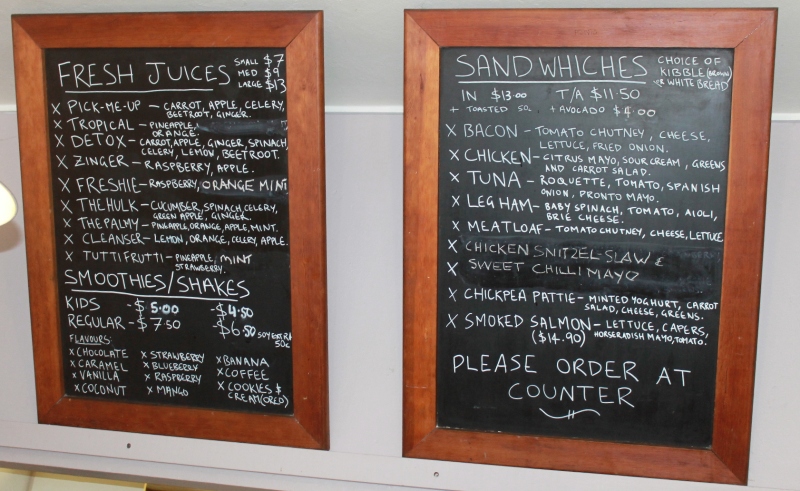 FRESH JUICES
SMALL $7
MED $9
LARGE $13
X PICK-ME-UP – CARROT, APPLE, CELERY,
BEETROOT, GINGER.
X TROPICAL – PINEAPPLE,
ORANGE.
X DETOX – CARROT, APPLE, GINGER, SPINACH,
CELERY, LEMON, BEETROOT.
X ZINGER – RASPBERRY, APPLE.
X FRESHIE – RASPBERRY, ORANGE MINT
X THE HULK – CUCUMBER, SPINACH, CELERY,
GREEN APPLE, GINGER.
X THE PALMY – PINEAPPLE, ORANGE, APPLE, MINT.
X CLEANSER – LEMON, ORANGE, CELERY, APPLE.
X TUTTI FRUTTI – PINEAPPLE, MINT
STRAWBERRY.
SMOOTHIES/SHAKES
KIDS - $5.00 - $4.50
REGULAR - $7.50 - $6.50 SOY EXTRA
50c
FLAVOURS:
X CHOCOLATE X STRAWBERRY X BANANA
X CARAMEL X BLUEBERRY X COFFEE
X VANILLA X RASPBERRY X COOKIES &
X COCONUT X MANGO CREAM (OREO)
SANDWHICHES
CHOICE OF
KIBBLE (BROWN)
OR WHITE BREAD
IN $13.00 T/A $11.50
+ TOASTED 50c + AVOCADO $4.00
X BACON – TOMATO CHUTNEY, CHEESE,
LETTUCE, FRIED ONION.
X CHICKEN – CITRUS MAYO, SOUR CREAM, GREENS
AND CARROT SALAD.
X TUNA – ROQUETTE, TOMATO, SPANISH
ONION, PRONTO MAYO.
X LEG HAM – BABY SPINACH, TOMATO, AIOLI,
BRIE CHEESE.
X MEATLOAF – TOMATO CHUTNEY, CHEESE, LETTUCE
X CHICKEN SNITZEL-SLAW &
X SWEET CHILLI MAYO
X CHICKPEA PATTIE – MINTED YOGHURT, CARROT
SALAD, CHEESE, GREENS.
X SMOKED SALMON – LETTUCE, CAPERS,
($14.90) HORSERADISH MAYO, TOMATO.
PLEASE ORDER AT
COUNTER